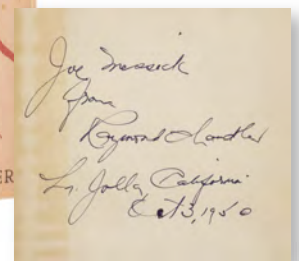 Joe Messick
from
Raymond Chandler
La Jolla, California
Oct 3, 1950
ER